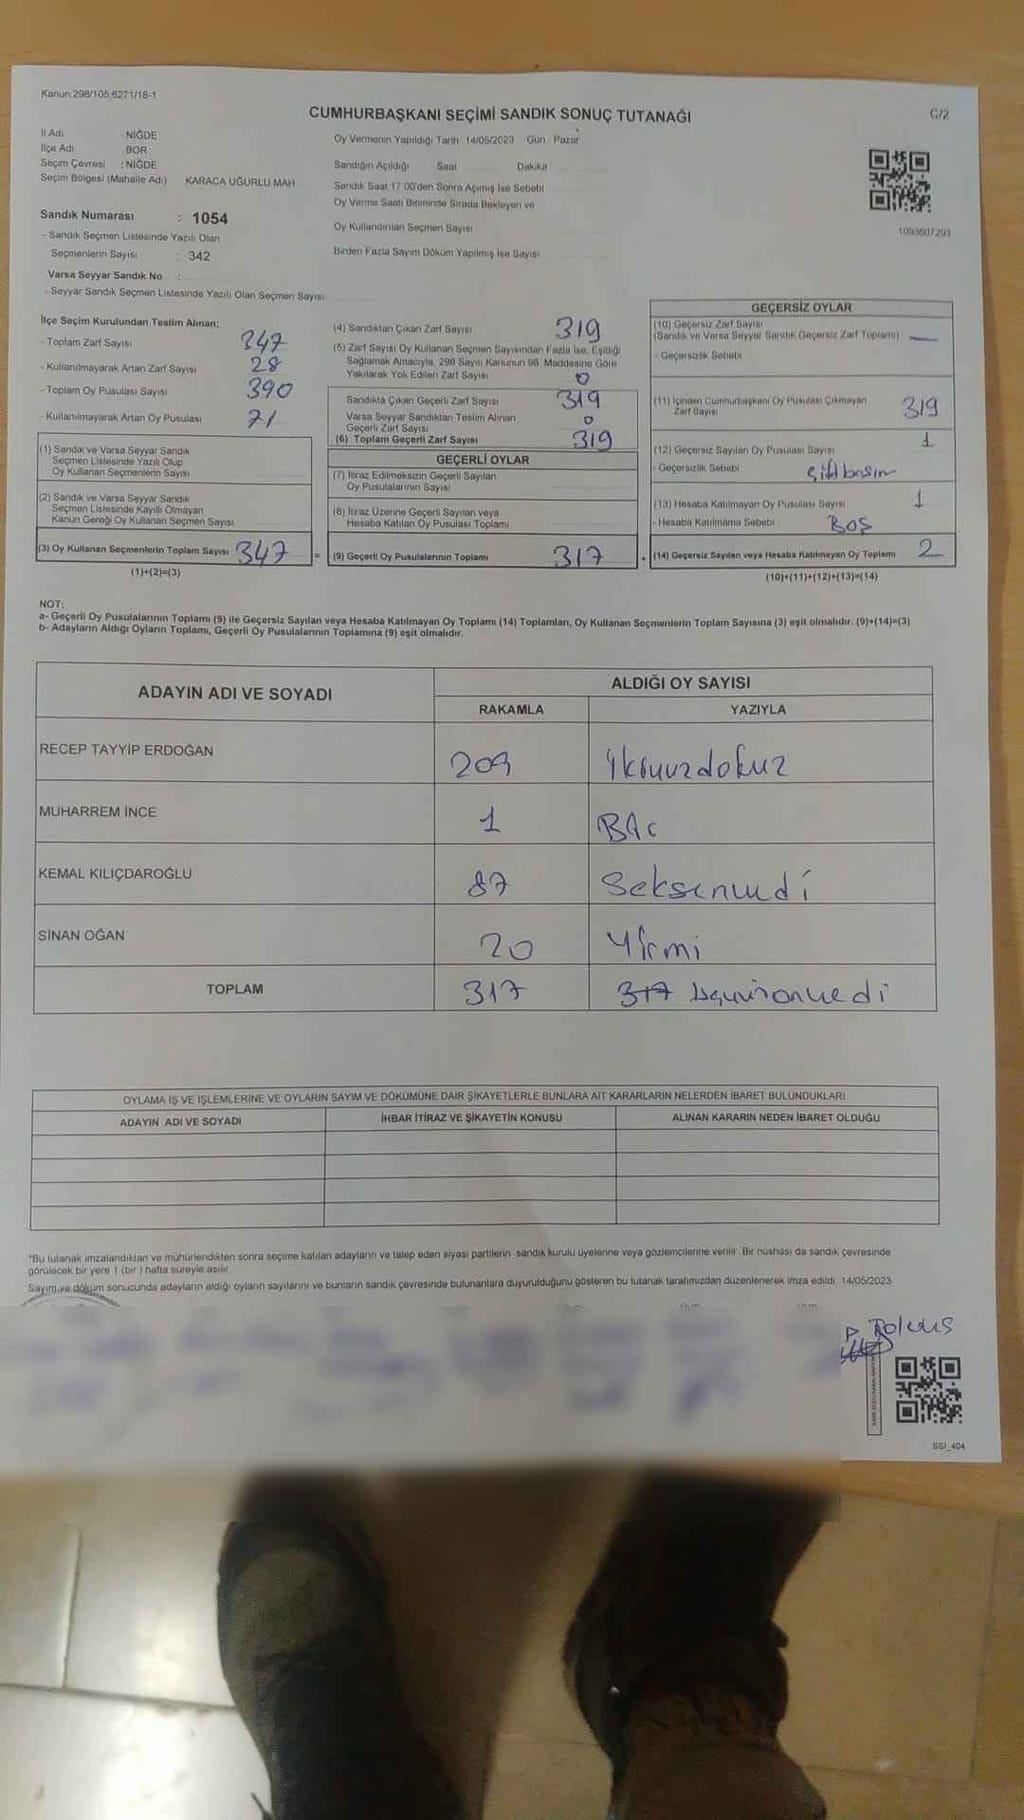 Kanun:298/105,6271/18-1
CUMHURBAŞKANI SEÇİMİ SANDIK SONUÇ TUTANAĞI
C/2
İl Adı : NİĞDE
İlçe Adı : BOR
Seçim Çevresi : NİĞDE
Seçim Bölgesi (Mahalle Adı) KARACA UĞURLU MAH.
Oy Vermenin Yapıldığı Tarih: 14/05/2023 Gün: Pazar
Sandığın Açıldığı Saat Dakika
Sandık Saat 17:00'den Sonra Açımış İse Sebebi
Oy Verme Saati Bitiminde Sırada Bekleyen ve
Oy Kullandırılan Seçmen Sayısı
Birden Fazla Sayım Döküm Yapılmış İse Sayısı
1093607293
Sandık Numarası : 1054
- Sandık Seçmen Listesinde Yazılı Olan
Seçmenlerin Sayısı : 342
Varsa Seyyar Sandık No :
- Seyyar Sandık Seçmen Listesinde Yazılı Olan Seçmen Sayısı:
İlçe Seçim Kurulundan Teslim Alınan;
- Toplam Zarf Sayısı 347
- Kullanılmayarak Artan Zarf Sayısı 28
- Toplam Oy Pusulası Sayısı 390
- Kullanılmayarak Artan Oy Pusulası 71
(1) Sandık ve Varsa Seyyar Sandık
Seçmen Listesinde Yazılı Olup
Oy Kullanan Seçmenlerin Sayısı
(2) Sandık ve Varsa Seyyar Sandık
Seçmen Listesinde Kayıtlı Olmayan
Kanun Gereği Oy Kullanan Seçmen Sayısı
(3) Oy Kullanan Seçmenlerin Toplam Sayısı 347 =
(1)+(2)=(3)
(4) Sandıktan Çıkan Zarf Sayısı 319
(5) Zarf Sayısı Oy Kullanan Seçmen Sayısından Fazla İse, Eşitliği
Sağlamak Amacıyla, 298 Sayılı Kanunun 98. Maddesine Göre
Yakılarak Yok Edilen Zarf Sayısı 0
Sandıkta Çıkan Geçerli Zarf Sayısı 319
Varsa Seyyar Sandıktan Teslim Alınan
Geçerli Zarf Sayısı 0
(6) Toplam Geçerli Zarf Sayısı 319
GEÇERLİ OYLAR
(7) İtiraz Edilmeksizin Geçerli Sayılan
Oy Pusulalarının Sayısı
(8) İtiraz Üzerine Geçerli Sayılan veya
Hesaba Katılan Oy Pusulası Toplamı
(9) Geçerli Oy Pusulalarının Toplamı 317 +
GEÇERSİZ OYLAR
(10) Geçersiz Zarf Sayısı
(Sandık ve Varsa Seyyar Sandık Geçersiz Zarf Toplamı) —
- Geçersizlik Sebebi
(11) İçinden Cumhurbaşkanı Oy Pusulası Çıkmayan
Zarf Sayısı 319
(12) Geçersiz Sayılan Oy Pusulası Sayısı 1
- Geçersizlik Sebebi
(13) Hesaba Katılmayan Oy Pusulası Sayısı 1
- Hesaba Katılmama Sebebi BOŞ
(14) Geçersiz Sayılan veya Hesaba Katılmayan Oy Toplamı 2
(10)+(11)+(12)+(13)=(14)
NOT:
a- Geçerli Oy Pusulalarının Toplamı (9) ile Geçersiz Sayılan veya Hesaba Katılmayan Oy Toplamı (14) Toplamları, Oy Kullanan Seçmenlerin Toplam Sayısına (3) eşit olmalıdır. (9)+(14)=(3)
b- Adayların Aldığı Oyların Toplamı, Geçerli Oy Pusulalarının Toplamına (9) eşit olmalıdır.
ADAYIN ADI VE SOYADI
ALDIĞI OY SAYISI
RAKAMLA YAZIYLA
RECEP TAYYİP ERDOĞAN 209 ikiyüzdokuz
MUHARREM İNCE 1
KEMAL KILIÇDAROĞLU 87 Seksenyedi
SİNAN OĞAN 20 Yirmi
TOPLAM 317 317
OYLAMA İŞ VE İŞLEMLERİNE VE OYLARIN SAYIM VE DÖKÜMÜNE DAİR ŞİKAYETLERLE BUNLARA AİT KARARLARIN NELERDEN İBARET BULUNDUKLARI
ADAYIN ADI VE SOYADI İHBAR İTİRAZ VE ŞİKAYETİN KONUSU ALINAN KARARIN NEDEN İBARET OLDUĞU
*Bu tutanak imzalandıktan ve mühürlendikten sonra seçime katılan adayların ve talep eden siyasi partilerin sandık kurulu üyelerine veya gözlemcilerine verilir. Bir nüshası da sandık çevresinde
görülecek bir yere 1 (bir) hafta süreyle asılır.
Sayım ve döküm sonucunda adayların aldığı oyların sayılarını ve bunların sandık çevresinde bulunanlara duyurulduğunu gösteren bu tutanak tarafımızdan düzenlenerek imza edildi. 14/05/2023
SSI_404